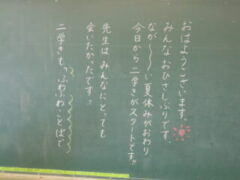 おはようございます。
みんなおひさしぶりです。
なが〜〜い夏休みがおわり
今日から二学きがスタートです!!
先生はみんなにとっても
会いたかったです♪
二学きも、ふわふわことばで